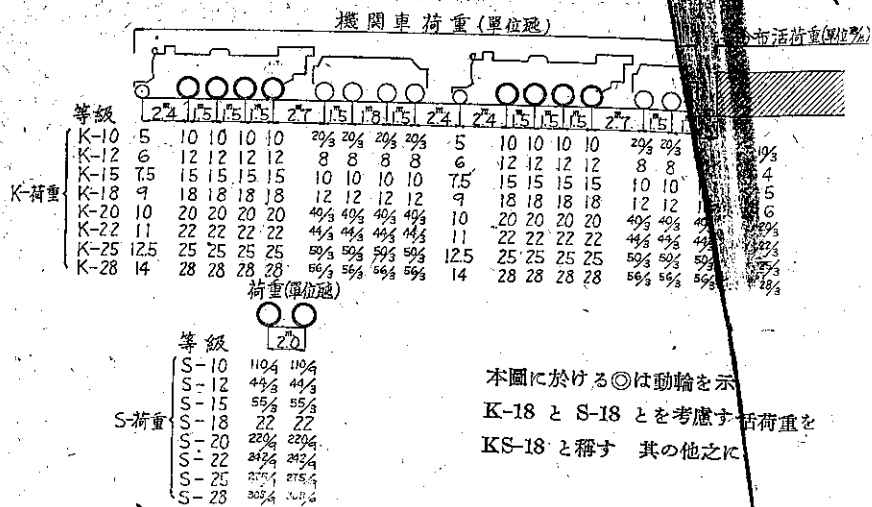 機関車荷重(單位瓲)
布活荷重(單位瓲/m)
等級 2.4m 1.5m 1.5m 1.5m 2.7m 1.5m 1.8m 1.5m 2.4m 2.4m 1.5m 1.5m 1.5m 2.7m 1.5m
K-荷重
K-10 5 10 10 10 10 20/3 20/3 20/3 20/3 5 10 10 10 10 20/3 20/3 10/3
K-12 6 12 12 12 12 8 8 8 8 6 12 12 12 12 8 8 4
K-15 7.5 15 15 15 15 10 10 10 10 7.5 15 15 15 15 10 10 5
K-18 9 18 18 18 18 12 12 12 12 9 18 18 18 18 12 12 6
K-20 10 20 20 20 20 40/3 40/3 40/3 40/3 10 20 20 20 20 40/3 40/3 20/3
K-22 11 22 22 22 22 44/3 44/3 44/3 44/3 11 22 22 22 22 44/3 44/3 22/3
K-25 12.5 25 25 25 25 50/3 50/3 50/3 50/3 12.5 25 25 25 25 50/3 50/3 50/3 25/3
K-28 14 28 28 28 28 56/3 56/3 56/3 56/3 14 28 28 28 28 56/3 56/3 56/3 28/3
荷重(單位瓲)
等級 2.0m
S-荷重
S-10 110/9 110/9
S-12 44/3 44/3
S-15 55/3 55/3
S-18 22 22
S-20 220/9 220/9
S-22 242/9 242/9
S-25 275/9 275/9
S-28
本圖に於ける◎は動輪を示
K-18 と S-18 とを考慮す 活荷重を
KS-18 と稱す 其の他之に